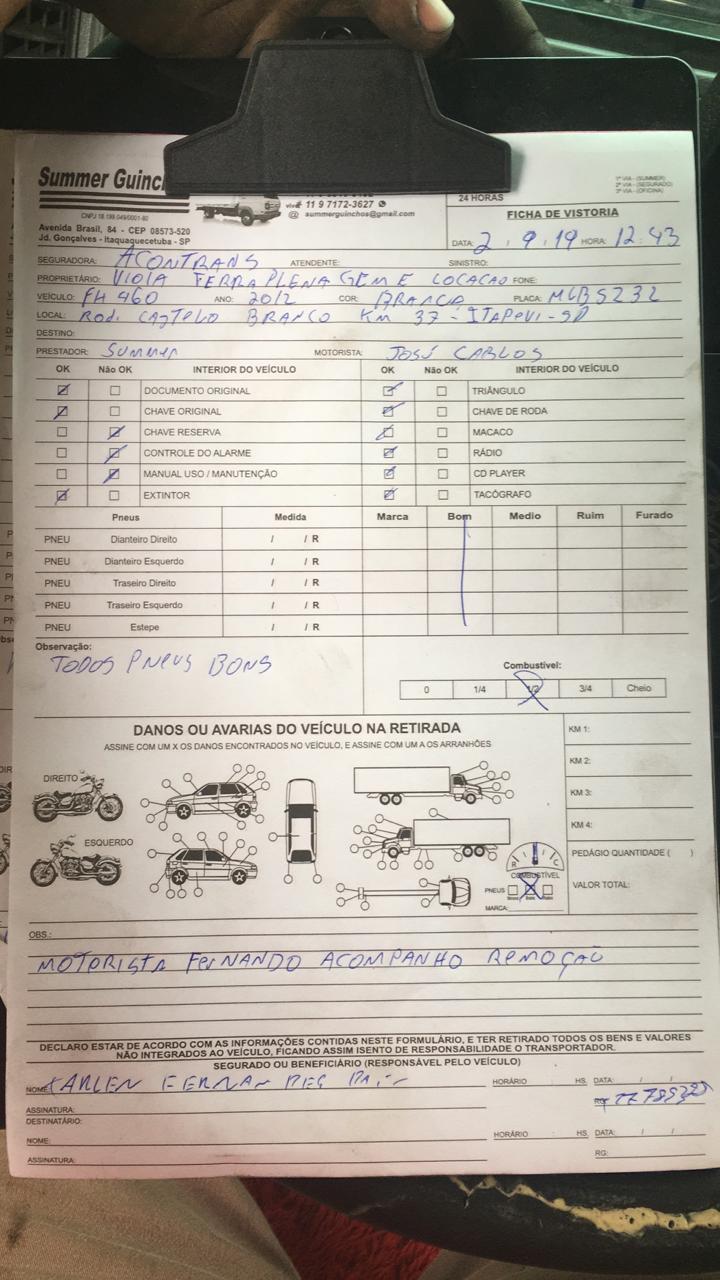 Summer Guinch
CNPJ 18.199.049/0001-80
Avenida Brasil, 84 - CEP 08573-520
Jd. Gonçalves - Itaquaquecetuba - SP
11 9 7172-3627
@ summerguinchos@gmail.com
24 HORAS
1ª VIA - (SUMMER)
2ª VIA - (SEGURADO)
3ª VIA - (OFICINA)
FICHA DE VISTORIA
DATA: 2 / 9 / 19 HORA: 12:43
SEGURADORA: ACONTRANS ATENDENTE: SINISTRO:
PROPRIETÁRIO: VIOLA FERRAPLENAGEM E LOCACAO FONE:
VEÍCULO: FH 460 ANO: 2012 COR: BRANCA PLACA: MLB5232
LOCAL: ROD. CASTELO BRANCO KM 37 - ITAPEVI - SP
DESTINO:
PRESTADOR: SUMMER MOTORISTA: JOSÉ CARLOS
OK Não OK INTERIOR DO VEÍCULO OK Não OK INTERIOR DO VEÍCULO
DOCUMENTO ORIGINAL TRIÂNGULO
CHAVE ORIGINAL CHAVE DE RODA
CHAVE RESERVA MACACO
CONTROLE DO ALARME RÁDIO
MANUAL USO / MANUTENÇÃO CD PLAYER
EXTINTOR TACÓGRAFO
Pneus Medida Marca Bom Medio Ruim Furado
PNEU Dianteiro Direito / / R
PNEU Dianteiro Esquerdo / / R
PNEU Traseiro Direito / / R
PNEU Traseiro Esquerdo / / R
PNEU Estepe / / R
Observação:
TODOS PNEUS BONS
Combustível:
0 1/4 1/2 3/4 Cheio
DANOS OU AVARIAS DO VEÍCULO NA RETIRADA
ASSINE COM UM X OS DANOS ENCONTRADOS NO VEÍCULO, E ASSINE COM UM A OS ARRANHÕES
KM 1:
KM 2:
KM 3:
KM 4:
PEDÁGIO QUANTIDADE ( )
VALOR TOTAL:
DIREITO
ESQUERDO
R C
COMBUSTÍVEL
PNEUS
MARCA:
OBS.:
MOTORISTA FERNANDO ACOMPANHO REMOÇÃO
DECLARO ESTAR DE ACORDO COM AS INFORMAÇÕES CONTIDAS NESTE FORMULÁRIO, E TER RETIRADO TODOS OS BENS E VALORES
NÃO INTEGRADOS AO VEÍCULO, FICANDO ASSIM ISENTO DE RESPONSABILIDADE O TRANSPORTADOR.
SEGURADO OU BENEFICIÁRIO (RESPONSÁVEL PELO VEÍCULO)
NOME: HORÁRIO HS. DATA: / /
ASSINATURA: RG:
DESTINATÁRIO:
NOME: HORÁRIO HS. DATA: / /
ASSINATURA: RG: